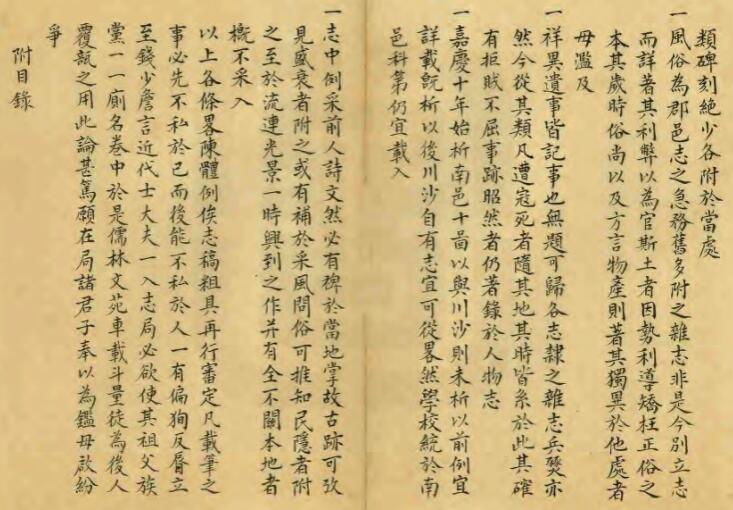 類碑刻絶少各附於當處
一風俗為郡邑志之急務舊多附之雜志非是今別立志
而詳著其利弊以為官斯土者因勢利導矯枉正俗之
本其歲時俗尚以及方言物產則著其獨異於他處者
毋濫及
一祥異遺事皆記事也無題可歸各志隸之雜志兵燹亦
然今從其類凡遭寇死者隨其地其時皆系於此其確
有拒賊不屈事跡昭然者仍著錄於人物志
一嘉慶十年始析南邑十啚以與川沙則未析以前例宜
詳載既析以後川沙自有志宜可從畧然學校統於南
邑科第仍宜載入
一志中例采前人詩文然必有裨於當地掌故古跡可攷
見盛衰者附之或有補於采風問俗可推知民隱者附
之至於流連光景一時興到之作并有全不關本地者
概不采入
以上各條畧陳體例俟志稿粗具再行審定凡載筆之
事必先不私於己而後能不私於人一有偏狥反脣立
至錢少詹言近代士大夫一入志局必欲使其祖父族
黨一一廁名卷中於是儒林文苑車載斗量徒為後人
覆瓿之用此論甚篤願在局諸君子奉以為鑑毋啟紛
爭
附目錄